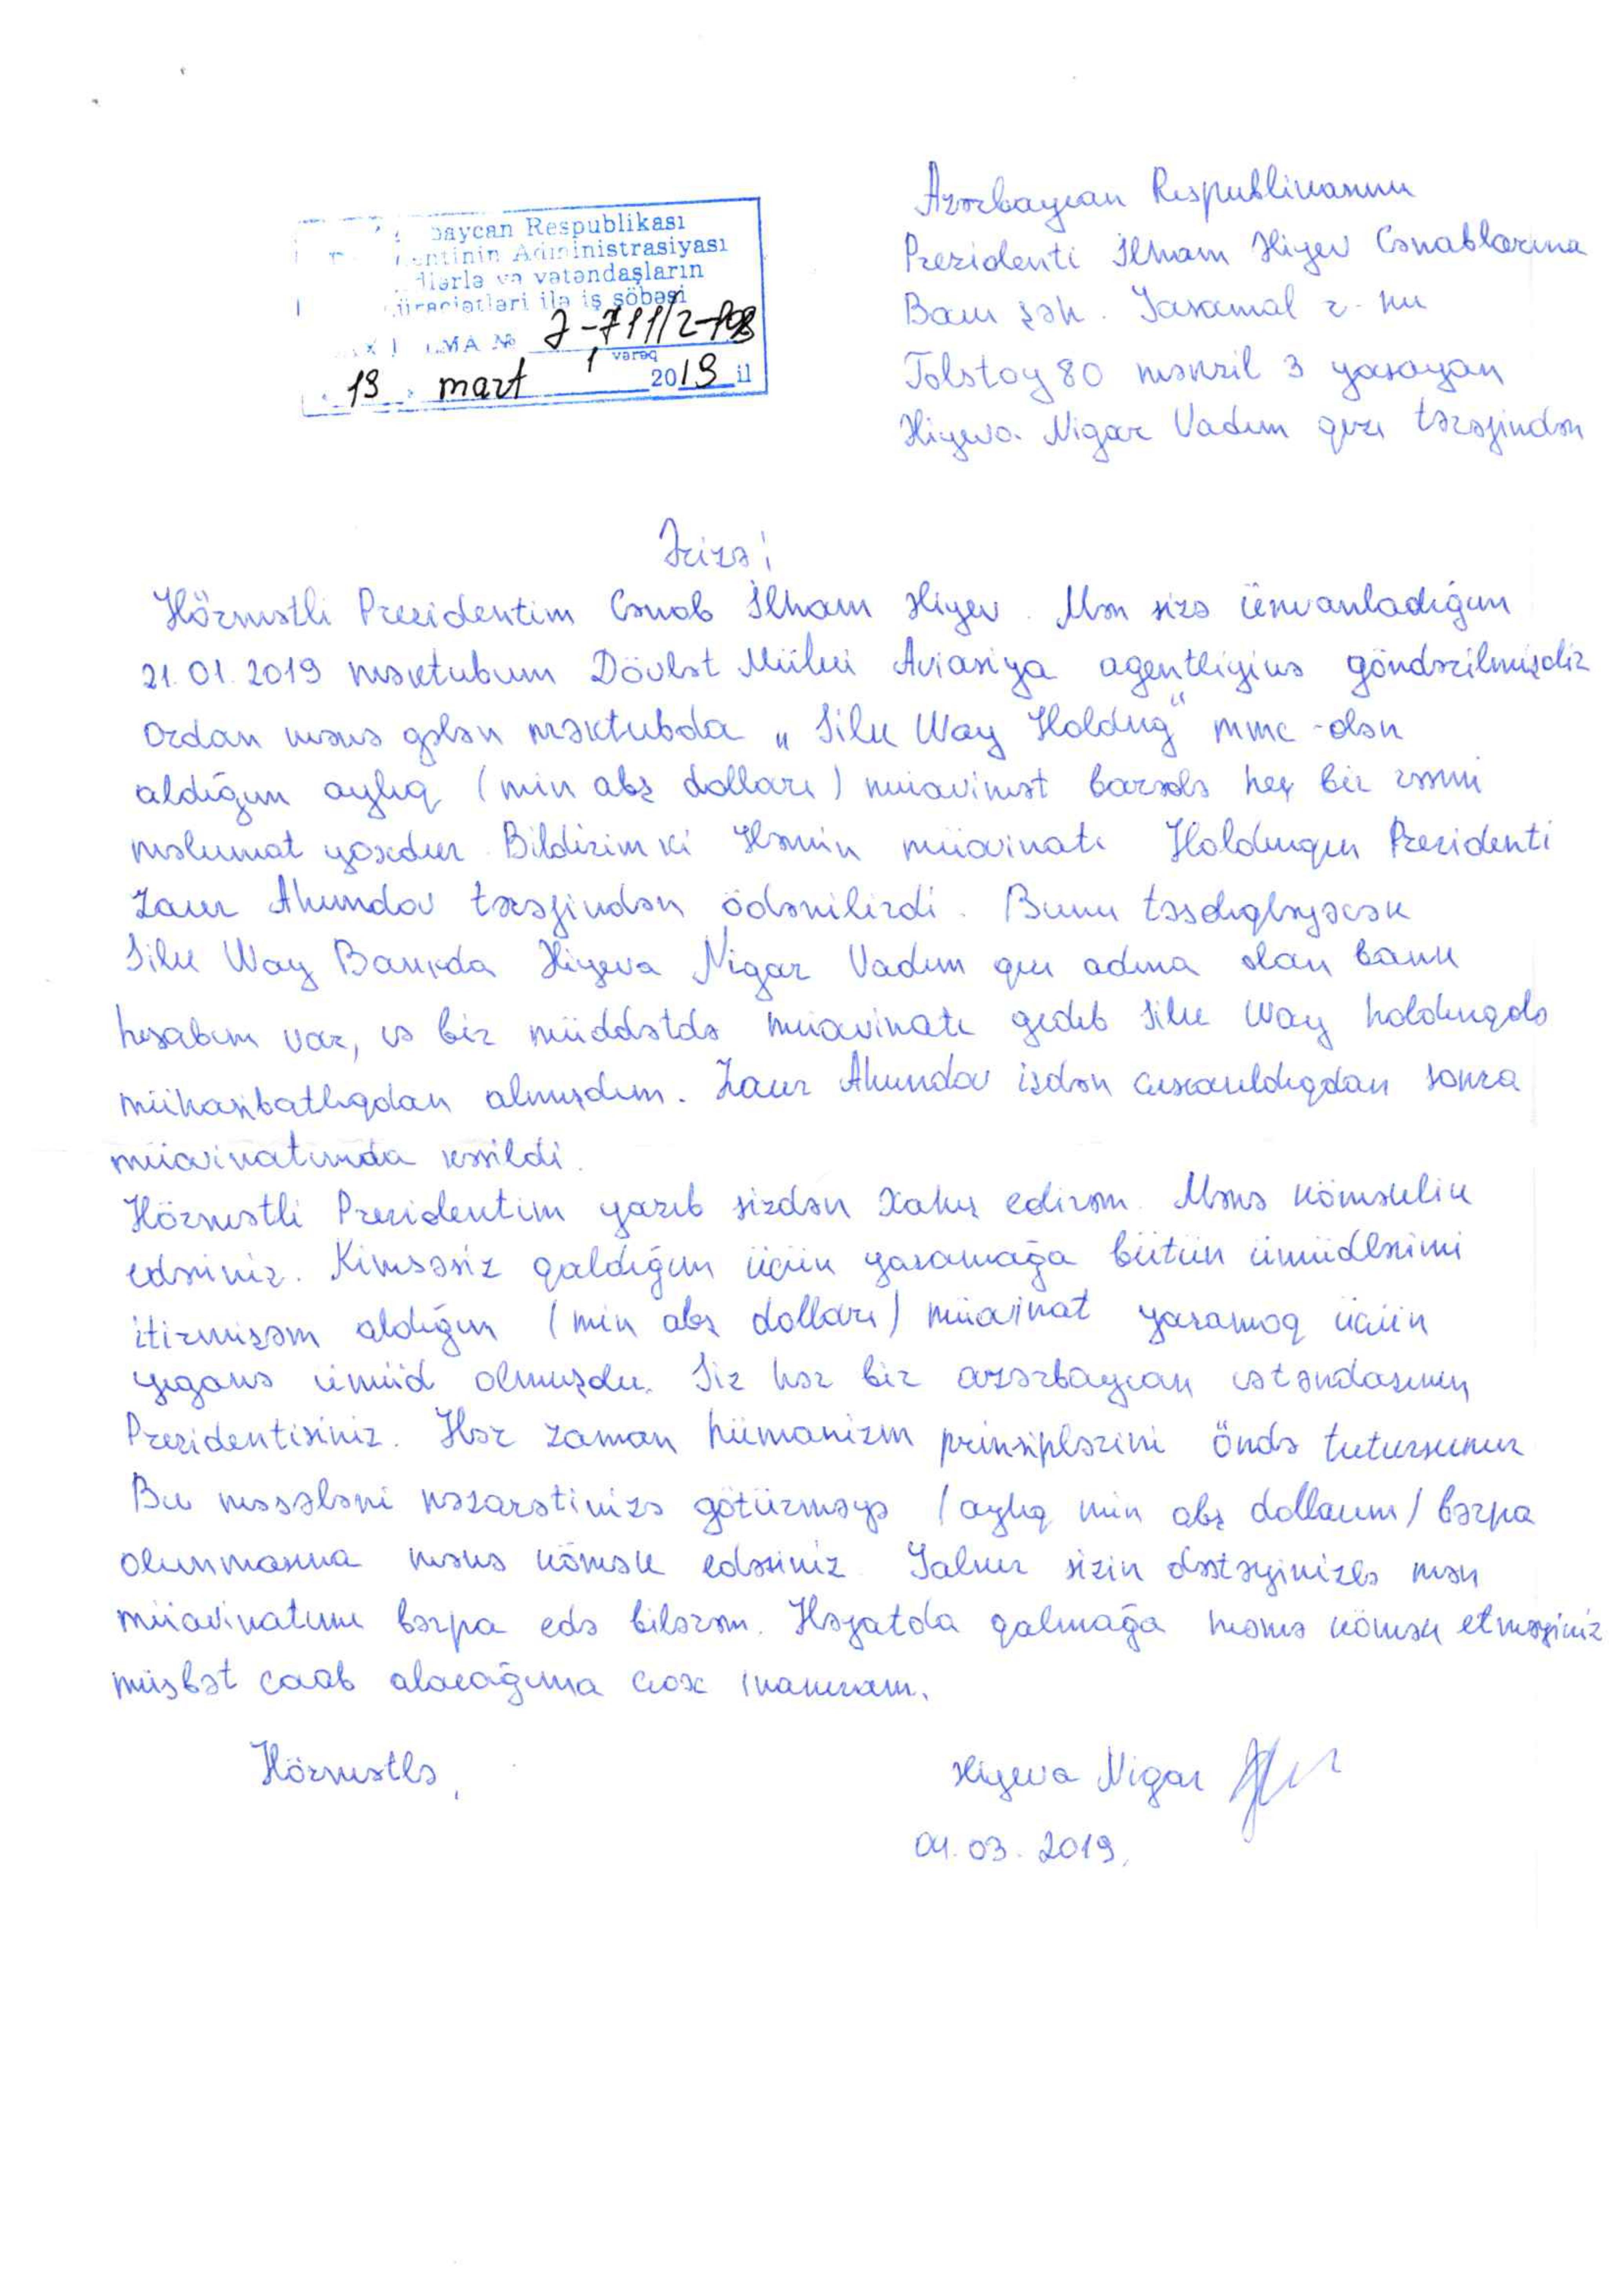 Azərbaycan Respublikasının
Prezidenti İlham Əliyev Cənablarına
Bakı şəh. Yasamal r-nu
Tolstoy 80 mənzil 3 yaşayan
Əliyeva Nigar Vadim qızı tərəfindən
baycan Respublikası
entinin Administrasiyası
və vətəndaşların
müraciətləri ilə iş şöbəsi
№ Ə-711/2-108
1 vərəq
13 mart 2019 il
Ərizə!
Hörmətli Prezidentim Cənab İlham Əliyev. Mən sizə ünvanladığım
21.01.2019 məktubum Dövlət Mülki Aviasiya agentliyinə göndərilmişdir
Ordan mənə gələn məktubda „Silk Way Holdıng" mmc-dən
aldığım aylıq (min abş dolları) müavinət barədə heç bir rəsmi
məlumat yoxdur. Bildirim ki Həmin müavinatı Holdınqın Prezidenti
Zaur Ahundov tərəfindən ödənilirdi. Bunu təsdıqləyəcək
Silk Way Bankda Əliyeva Nigar Vadım qızı adına olan bank
hesabım var, və bir müddətdə müavinatı gedib Silk Way holdınqdə
mühasibatlıqdan almışdım. Zaur Ahundov işdən çıxarıldıqdan sonra
müavinatımda kəsildi.
Hörmətli Prezidentim yazıb sizdən Xahış edirəm. Mənə köməklik
edəsiniz. Kimsəsiz qaldığım üçün yaşamağa bütün ümüdlərimi
itirmişəm aldığım (min abş dolları) müavinat yaşamaq üçün
yeganə ümüd olmuşdu. Siz hər bir azərbaycan vətəndaşının
Prezidentisiniz. Hər zaman hümanizm prinsiplərini öndə tutursunuz
Bu məsələni nəzarətinizə götürməyə (aylıq min abş dollarım) bərpa
olunmasına mənə kömək edəsiniz. Yalnız sizin dəstəyinizlə mən
müavinatımı bərpa edə bilərəm. Həyatda qalmağa mənə kömək etməyiniz
müsbət caab alacağıma çox inanıram.
Hörmətlə,
Əliyeva Nigar
04.03.2019.